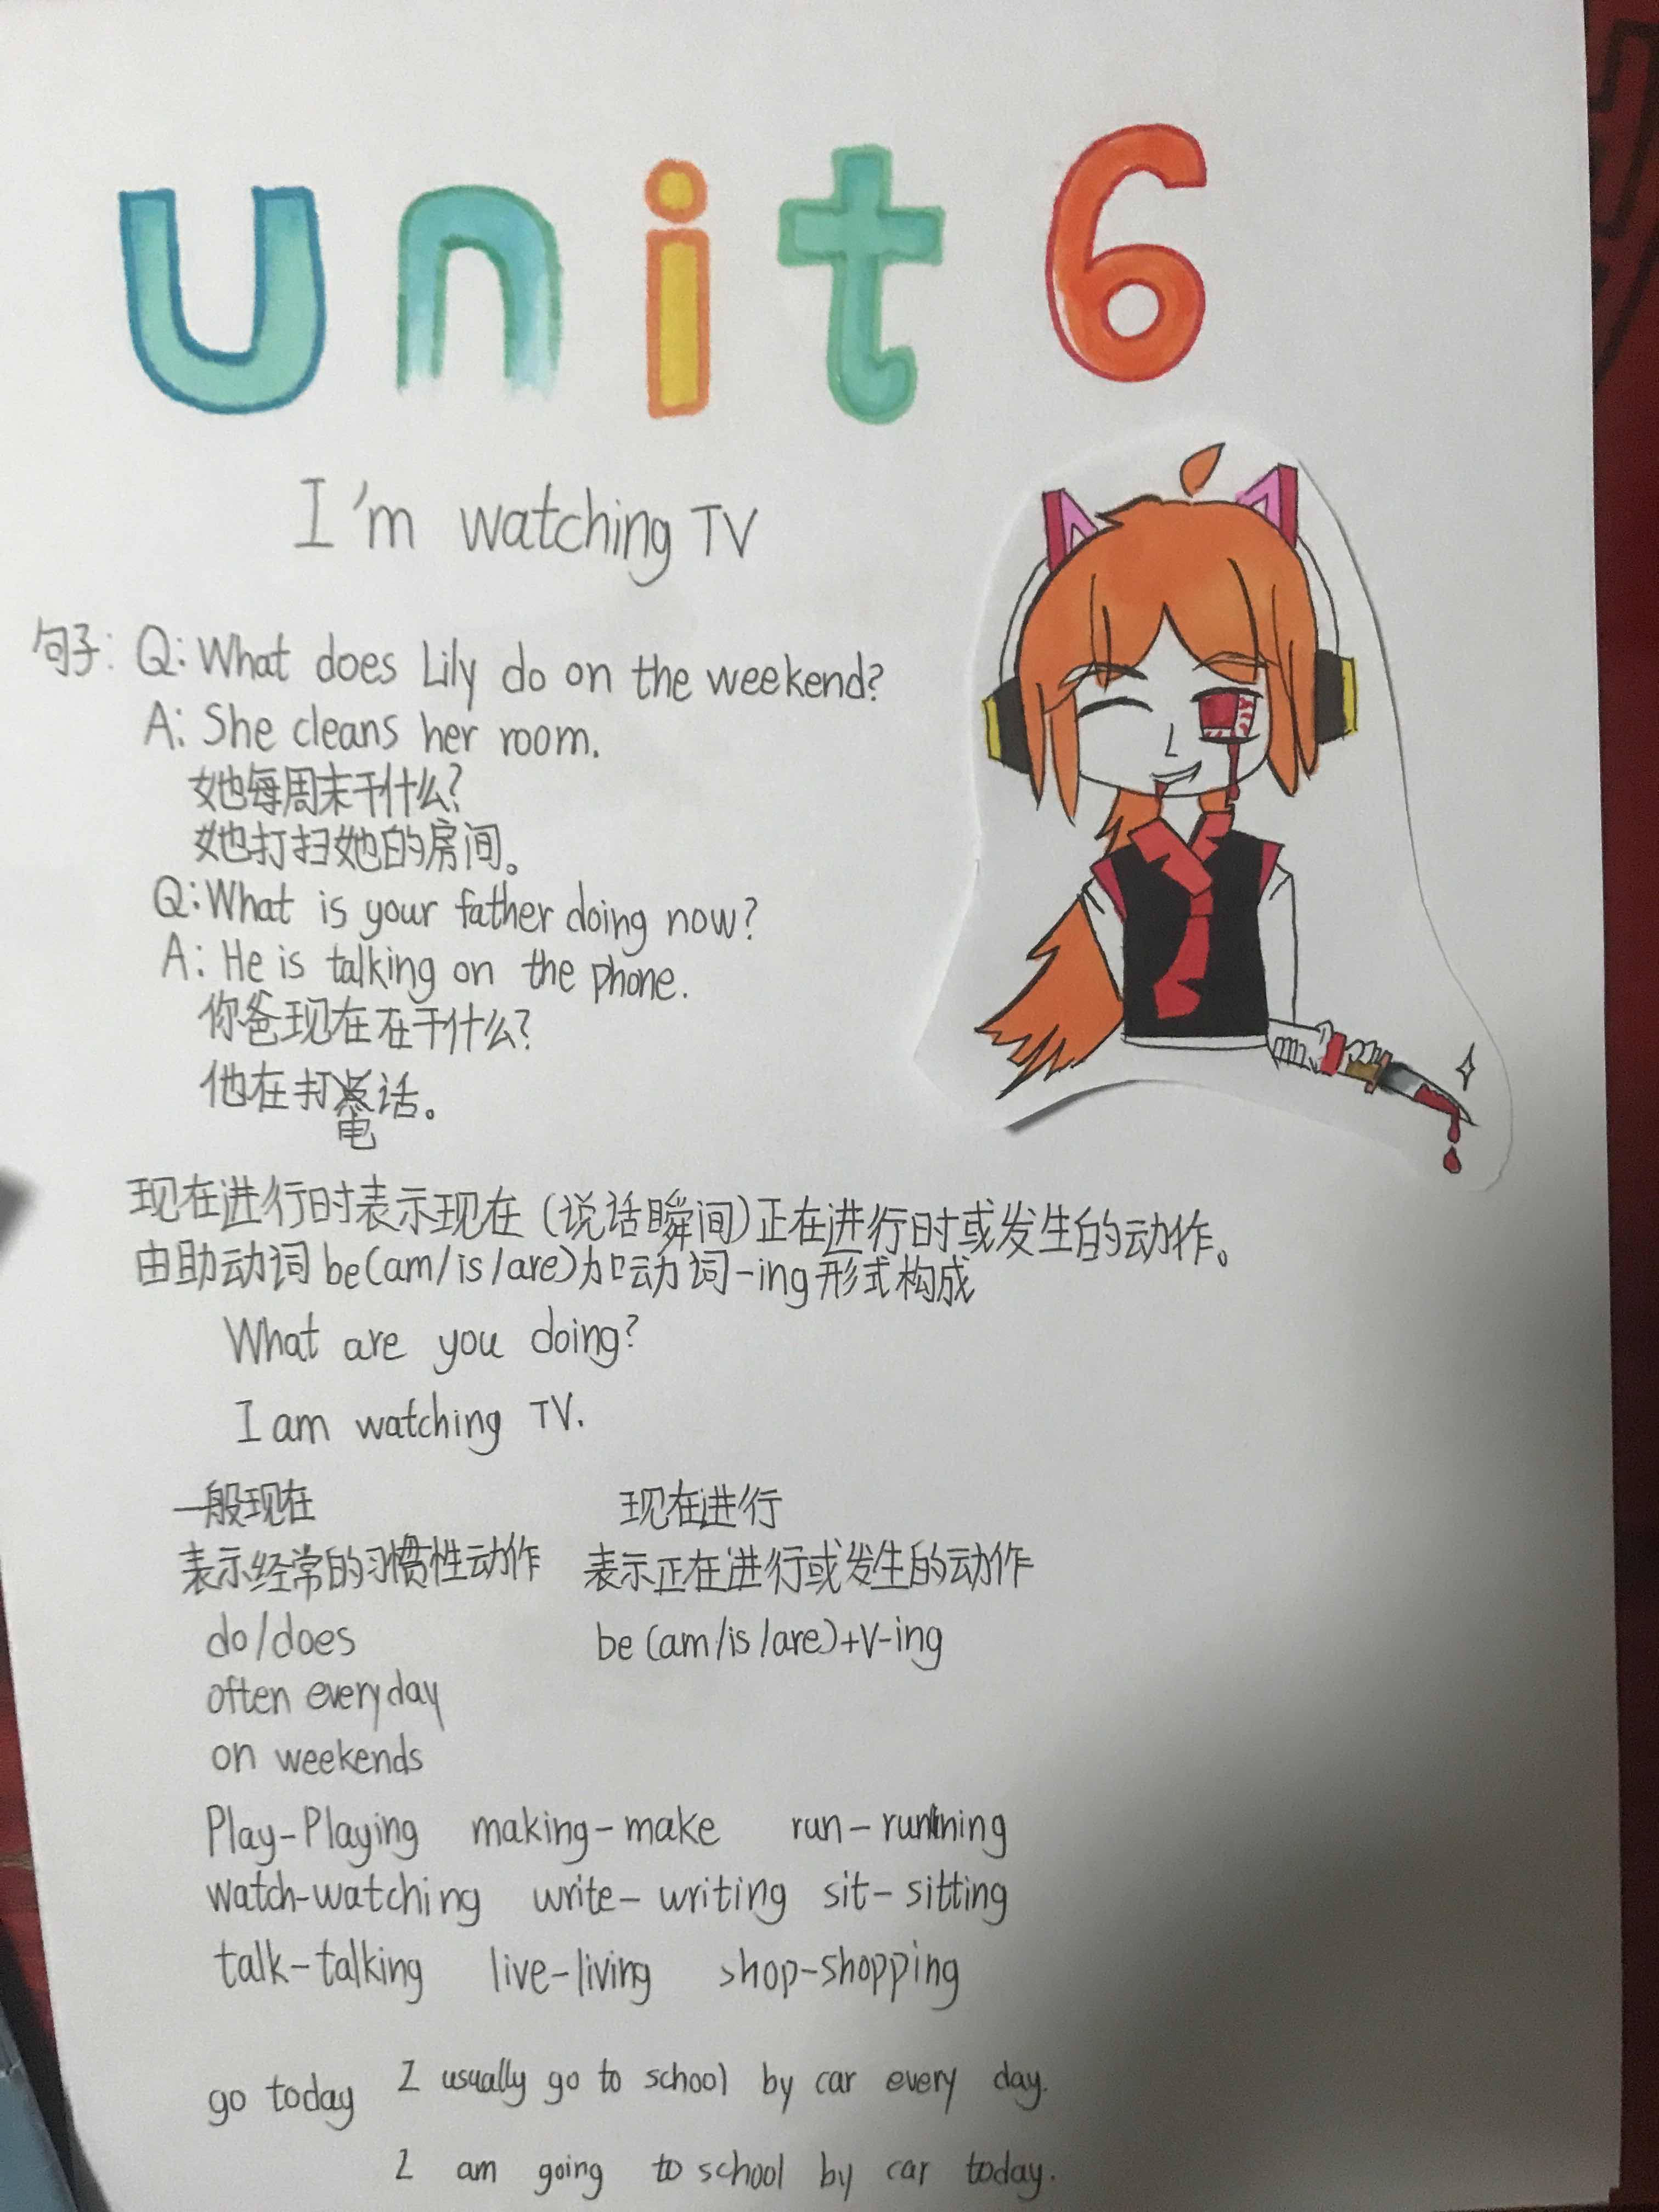 unit 6
I'm watching TV
句子: Q: What does Lily do on the weekend?
A: She cleans her room.
她每周末干什么?
她打扫她的房间。
Q: What is your father doing now?
A: He is talking on the phone.
你爸现在在干什么?
他在打电话。
现在进行时表示现在(说话瞬间)正在进行时或发生的动作。
由助动词be(am/is/are)加动词-ing形式构成
What are you doing?
I am watching TV.
一般现在 现在进行
表示经常的习惯性动作 表示正在进行或发生的动作
do/does be (am/is/are)+V-ing
often everyday
on weekends
Play-Playing making-make run-running
watch-watching write-writing sit-sitting
talk-talking live-living shop-shopping
go today I usually go to school by car every day.
I am going to school by car today.